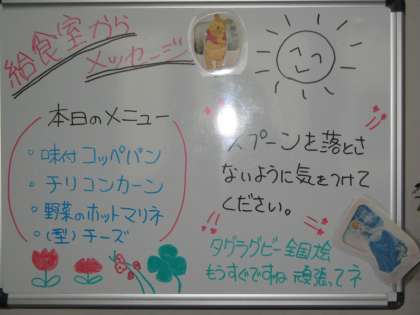 給食室から
メッセージ
本日のメニュー
・味付コッペパン
・チリコンカーン
・野菜のホットマリネ
・(型)チーズ
スプーンを落とさ
ないように気をつけて
ください。
タグラグビー全国大会
もうすぐですね 頑張ってネ